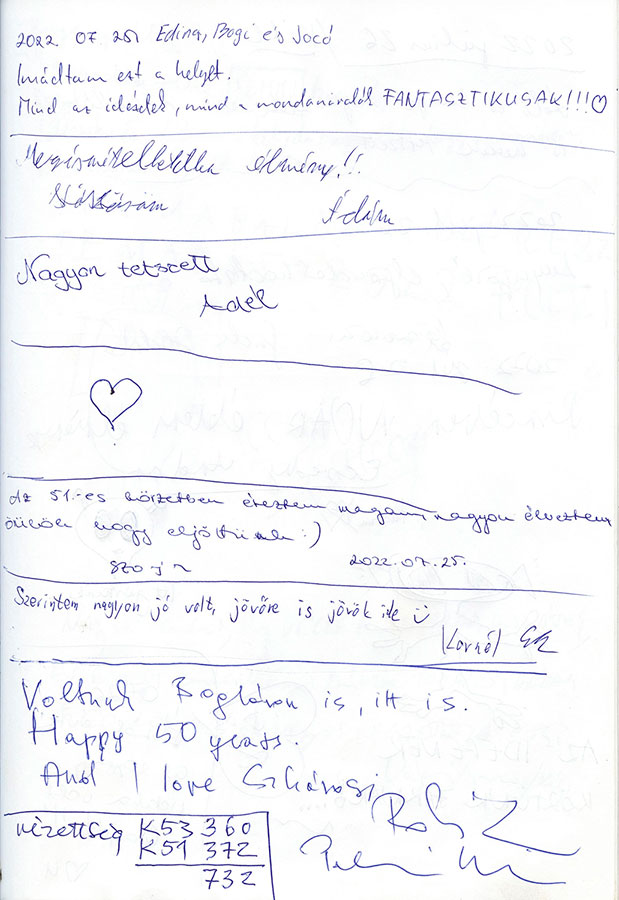 2022 07. 25. Edina, Bogi és Jocó
Imádtam ezt a helyet.
Mind az idézetek, mind a mondanivalók FANTASZTIKUSAK!!!♡
élmény!!
Ádám
Nagyon tetszett
Adél
♡
Az 51.-es körzetben éreztem magam, nagyon élveztem
örülök hogy eljöttünk :)
Szonja 2022.07.25.
Szerintem nagyon jó volt, jövőre is jövök ide
Kornél
Voltunk Bogláron is, itt is.
Happy 50 years.
And I love Szkárosi
nézettség K53 360
K51 372
732